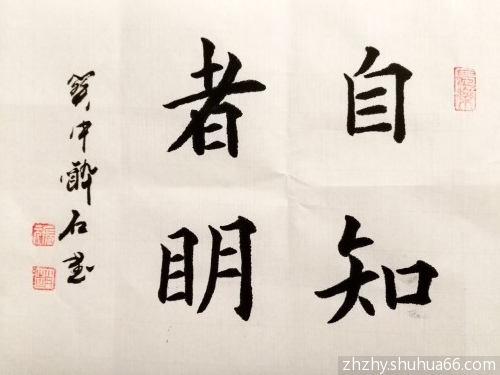 自知
者眀
中酔石书
zhzhy.shuhua66.com